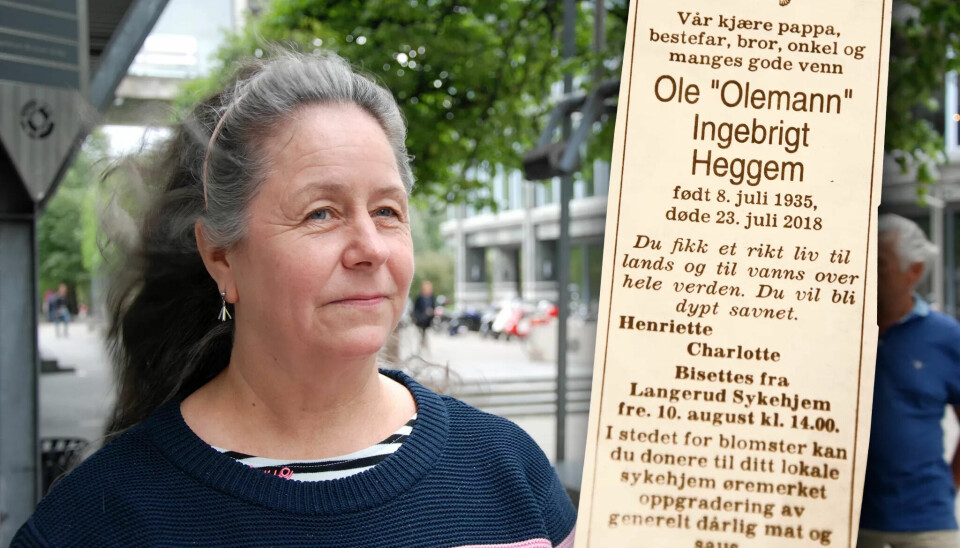 Vår kjære pappa,
bestefar, bror, onkel og
manges gode venn
Ole "Olemann"
Ingebrigt
Heggem
født 8. juli 1935,
døde 23. juli 2018
Du fikk et rikt liv til
lands og til vanns over
hele verden. Du vil bli
dypt savnet.
Henriette
Charlotte
Bisettes fra
Langerud Sykehjem
fre. 10. august kl. 14.00.
I stedet for blomster kan
du donere til ditt lokale
sykehjem øremerket
oppgradering av
generelt dårlig mat og
saus